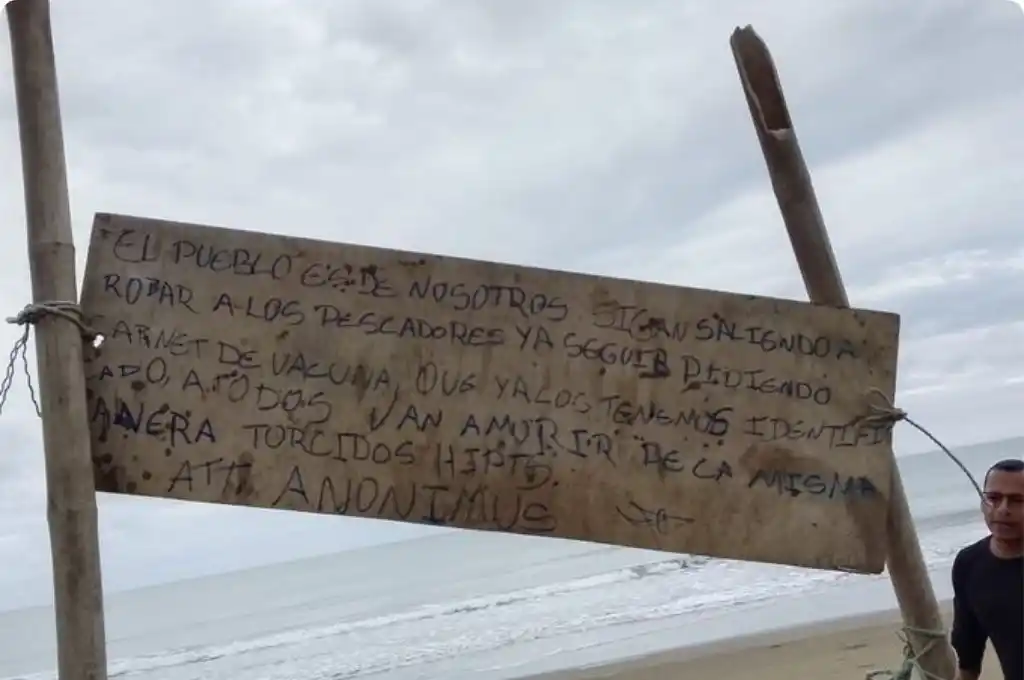 "EL PUEBLO ES DE NOSOTROS SIGAN SALIENDO A
ROBAR A LOS PESCADORES YA SEGUIR PIDIENDO
CARNET DE VACUNA, QUE YA LOS TENEMOS IDENTIFI
CADO, A TODOS VAN AMORIR DE LA MISMA
MANERA TORCIDOS HIPTS.
ATT. ANONIMUS